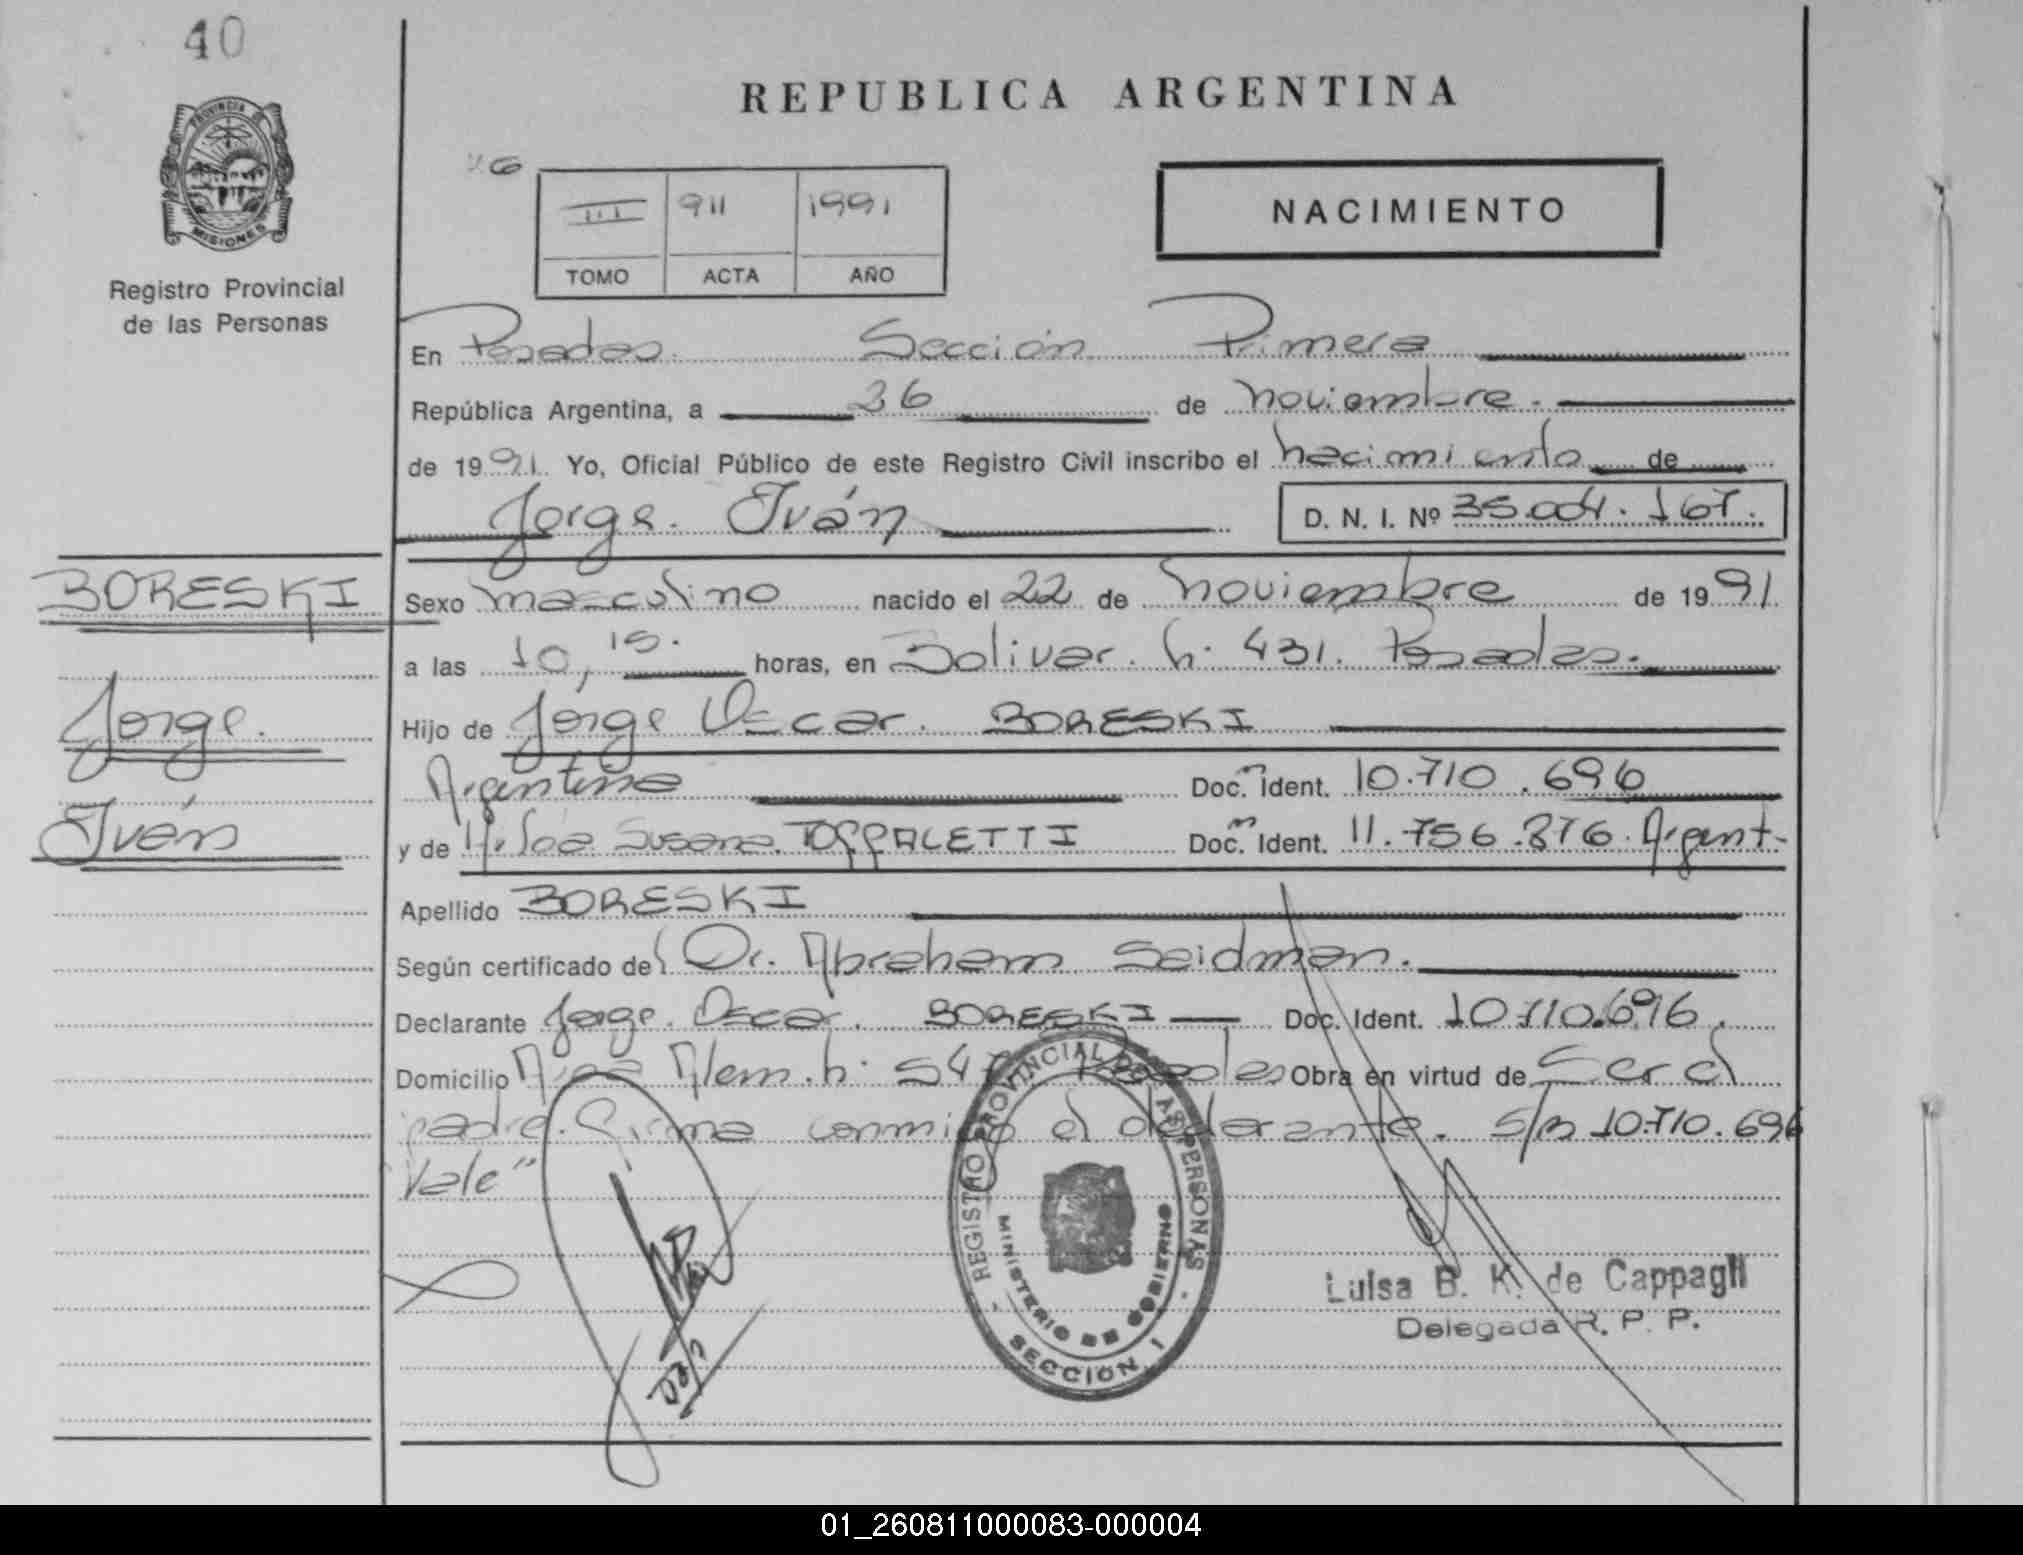 40
PROVINCIA DE
MISIONES
Registro Provincial
de las Personas
REPUBLICA ARGENTINA
III 911 1991
TOMO ACTA AÑO
NACIMIENTO
En Posadas. Sección Primera
República Argentina, a 26 de noviembre.
de 1991. Yo, Oficial Público de este Registro Civil inscribo el nacimiento de
Jorge. Iván D. N. I. Nº 35.004.167.
BORESKI
Jorge.
Iván
Sexo masculino nacido el 22 de noviembre de 1991.
a las 10,15. horas, en Bolivar. n. 431. Posadas.
Hijo de Jorge Oscar. BORESKI
Argentino Doc. Ident. 10.710.696
y de Hilda Susana. Doc. Ident. 11.756.876. Argent.
Apellido BORESKI
Según certificado de Dr. Abraham Seidman.
Declarante Jorge. Oscar. BORESKI Doc. Ident. 10.710.696.
Domicilio Alem. n. Posadas Obra en virtud de Ser el
padre. Firma conmigo el declarante. s/m 10.710.696
Vale"
REGISTRO PROVINCIAL DE LAS PERSONAS
MINISTERIO DE GOBIERNO
SECCION I
Luisa B. K. de Cappagli
Delegada R. P. P.
01_260811000083-000004